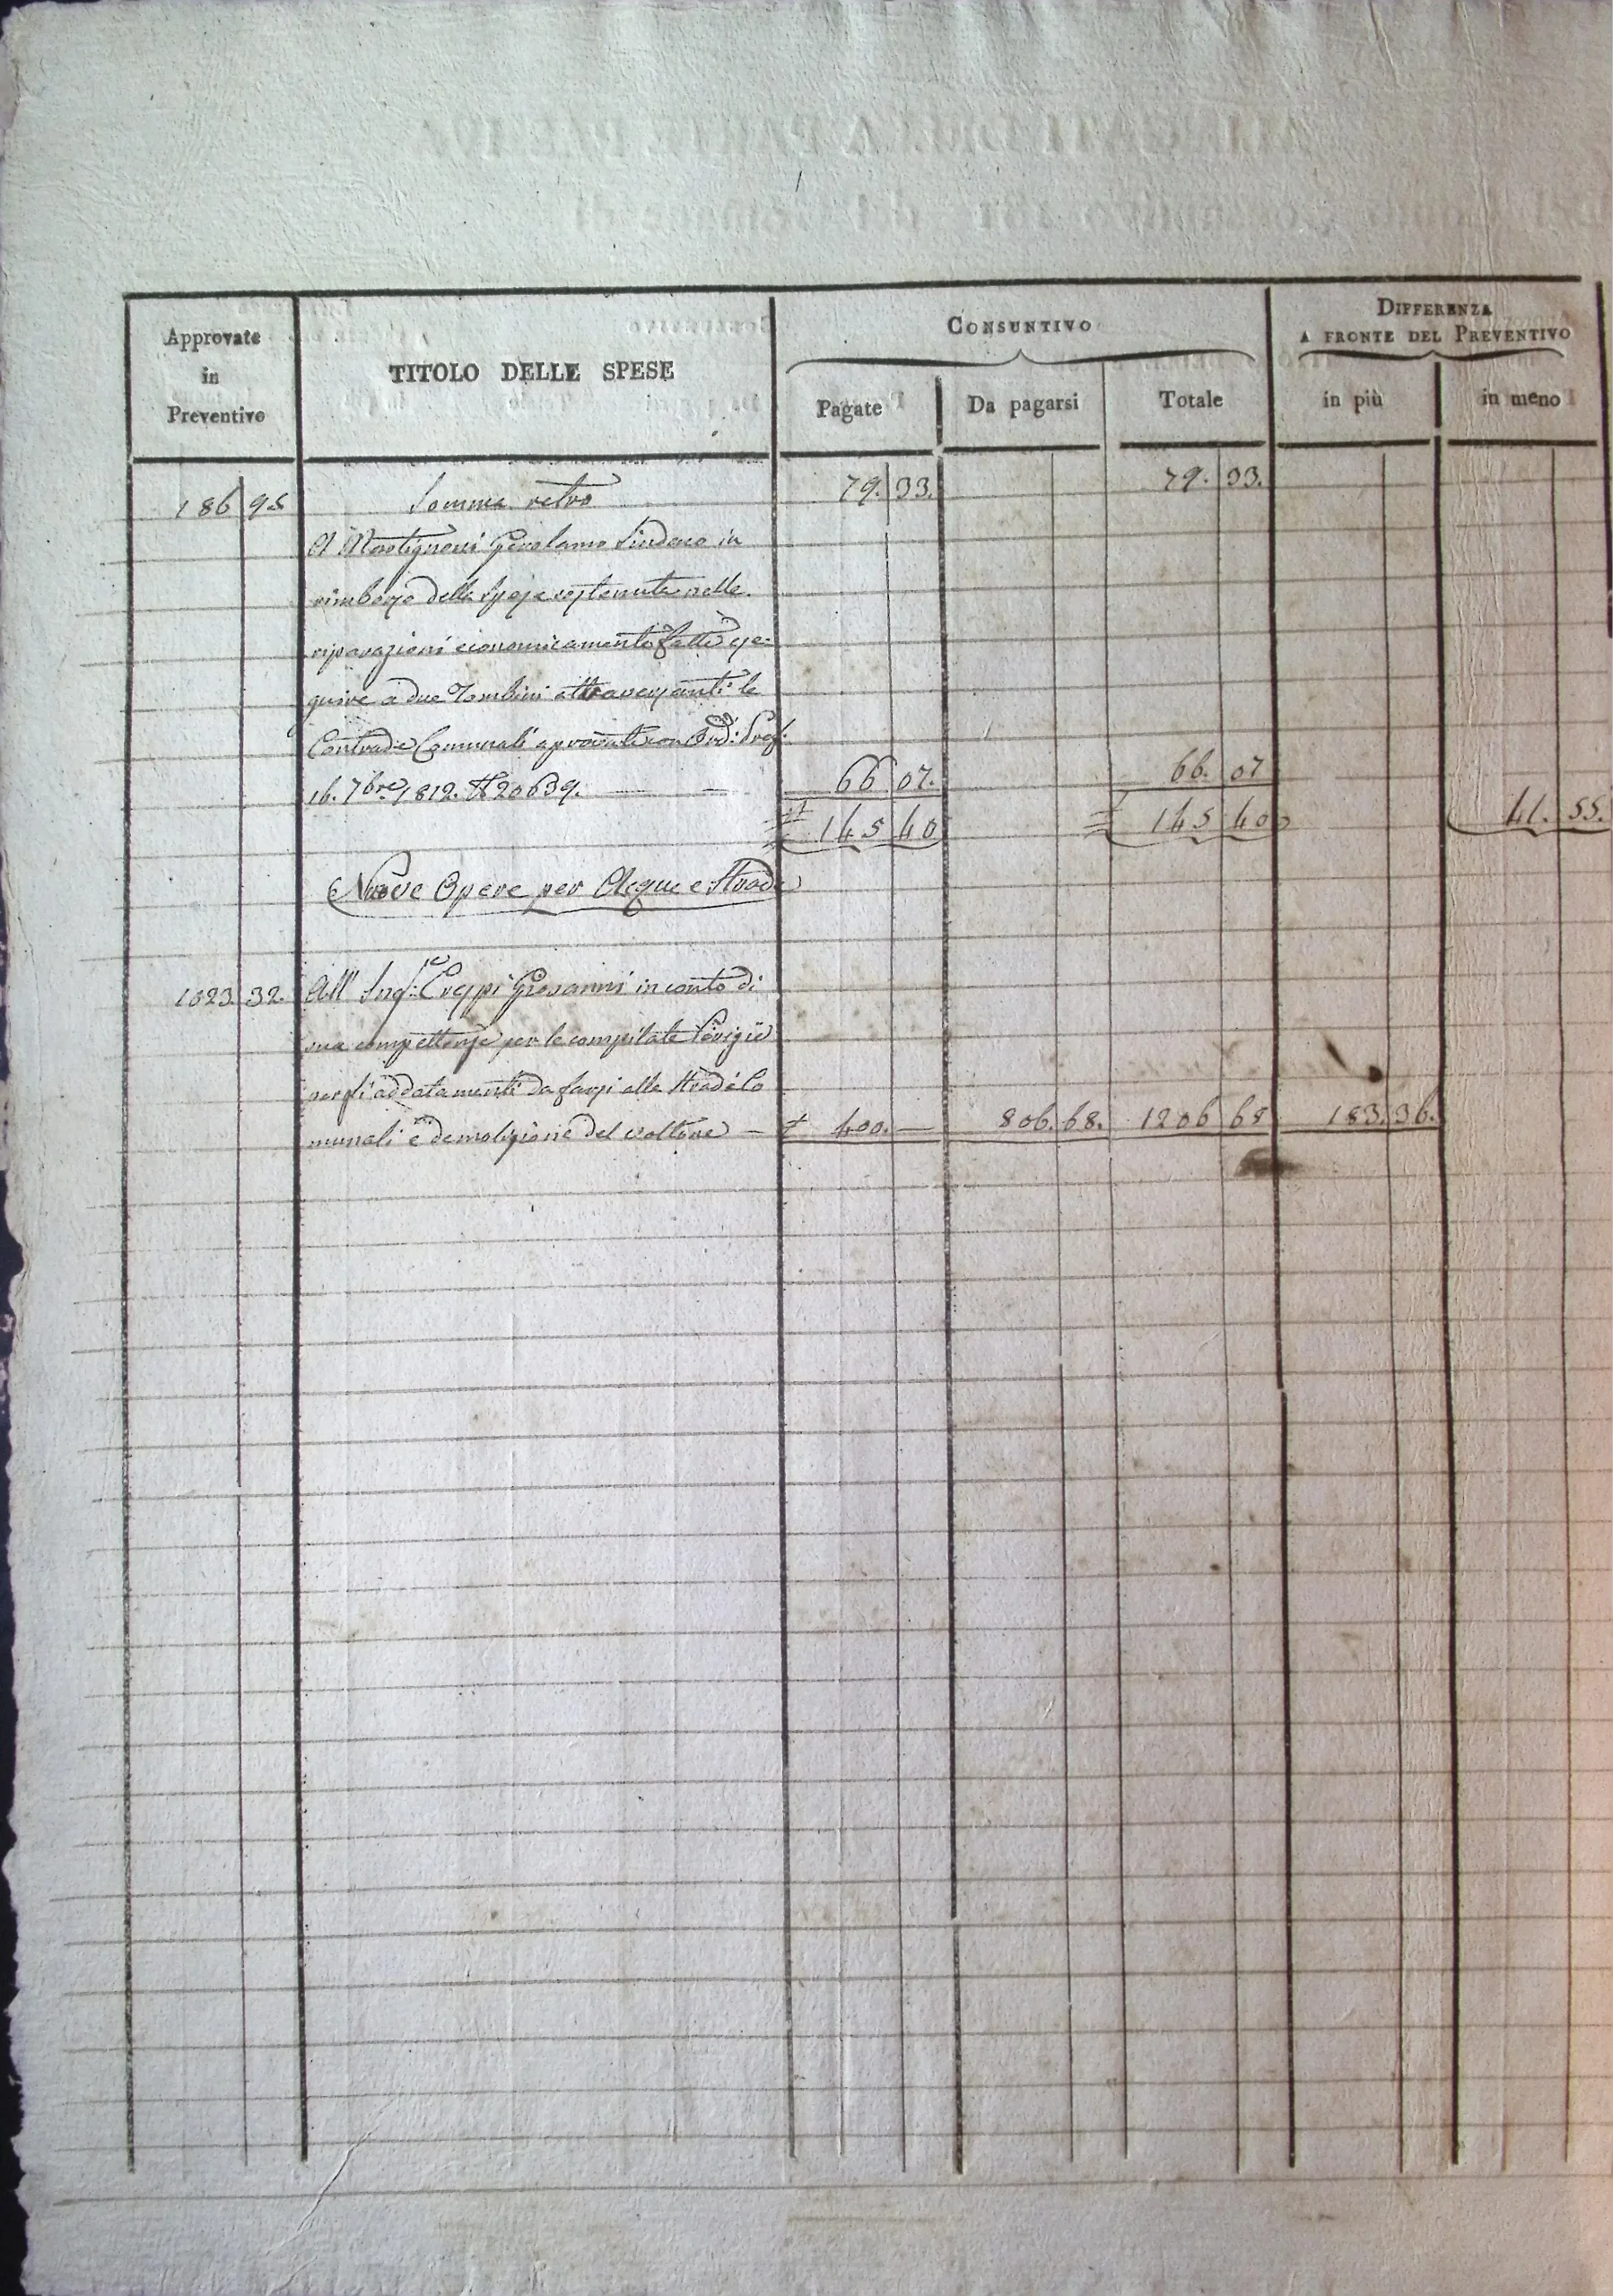 Approvate in Preventivo | TITOLO DELLE SPESE | CONSUNTIVO | DIFFERENZA A FRONTE DEL PREVENTIVO
Pagate | Da pagarsi | Totale | in più | in meno
186 95 Somma retro 79. 33. 79. 33.
A Martignoni Gerolamo Sindaco in
rimborso della spesa sostenuta nelle
riparazioni economicamente fatte ese=
guire a due Tombini attraversanti le
Contrade Comunali aprovate con Ord: Pref:
16. 7bre 1812. N 20639. — — 66 07. 66. 07
145 40 145 40 41. 55.
Nuove Opere per Acque e Strade
1023 32. All' Ing:re Crespi Giovanni in conto di
sua compettenze per le compilate Perizie
per li addatamenti da farsi alle Strade Co
munali e demolizione del voltone — 400. — 806. 68. 1206 68 183. 36.